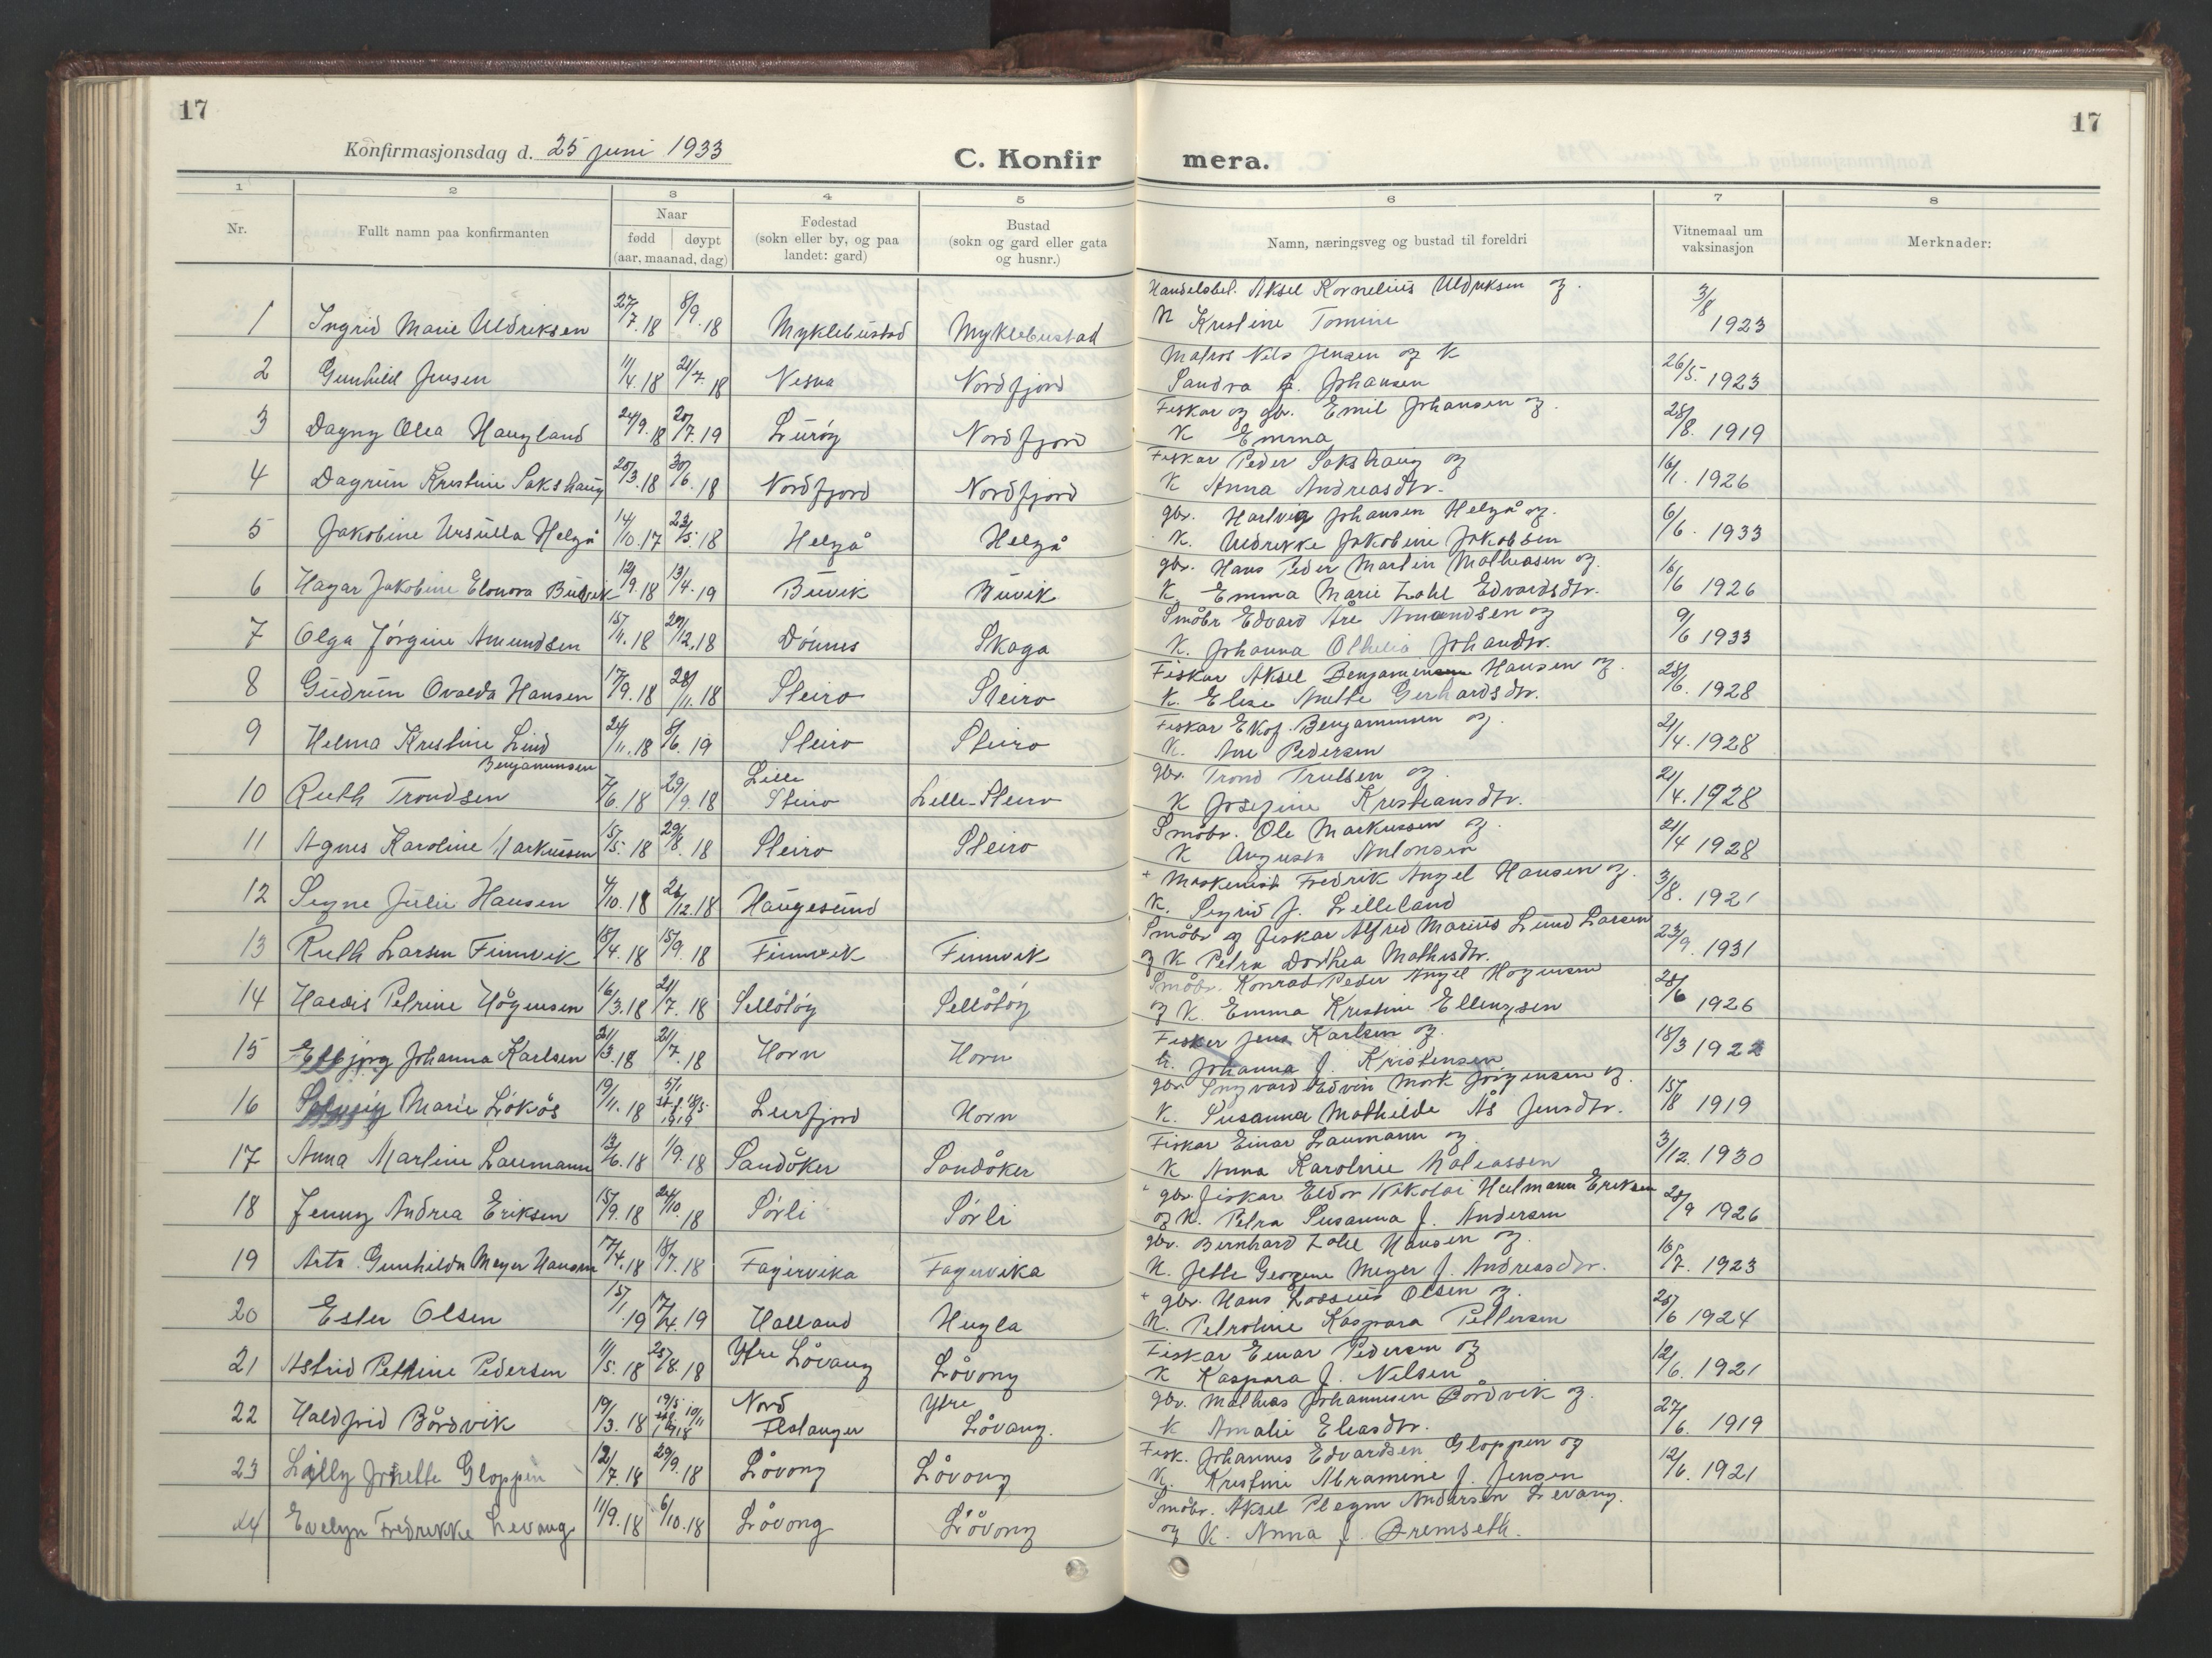 17
17
Konfirmasjonsdag d. 25 juni 1933
C. Konfir mera.
1 2 3 4 5 6 7 8
Nr.
Fullt namn paa konfirmanten
Naar
fødd døypt
(aar, maanad, dag)
Fødestad
(sokn eller by, og paa
landet: gard)
Bustad
(sokn og gard eller gata
og husnr.)
Namn, næringsveg og bustad til foreldri
Vitnemaal um
vaksinasjon
Merknader:
Handelsbet. Aksel Kornelius Uldriksen og
1 Ingrid Marie Uldriksen 27/7.18 8/9.18 Myklebustad Myklebustad K Kristine Tomine 3/8 1923
Matros Nils Jensen og K
2 Gunhild Jensen 11/4.18 21/7.18 Nesna Nordfjord Sandra Johansen 26/5. 1923
Fiskar og gbr. Emil Johansen og
3 Dagny Olea Haugland 24/9.18 20/7.19 Lurøy Nordfjord K Emma 28/8. 1919
Fiskar Peder Sakshaug og
4 Dagrun Kristine Sakshaug 28/3.18 30/6.18 Nordfjord Nordfjord K Anna Andreasdtr. 16/1. 1926
gbr. Hartvig Johansen Helgå og
5 Jakobine Ursulla Helgå 14/10.17 23/5.18 Helgå Helgå K. Uldrikke Jakobine Jakobsen 6/6. 1933
gbr. Hans Peder Martin Mathiasen og
6 Hagar Jakobine Elonora Buvik 12/9.18 13/4.19 Buvik Buvik K. Emma Marie Zahl Edvardsdtr. 16/6 1926
Småbr Edvard Åre Amundsen og
7 Olga Jørgine Amundsen 15/11.18 29/12.18 Dønnes Skaga K. Johanna Othelia Johansdtr. 9/6 1933
Fiskar Aksel Benjaminsen Hansen og
8 Gudrun Ovalda Hansen 17/9.18 28/11.18 Sleiro Sleiro K. Elise Anette Gerhardsdtr. 28/6. 1928
Fiskar Ekof Benjaminsen og
9 Helma Kristine Lind Benjaminsen 24/11.18 8/6.19 Sleiro Sleiro K. Ane Pedersen 21/4. 1928
gbr. Trond Trulsen og
10 Ruth Trondsen 7/6.18 29/9.18 Lille Sleiro Lille-Sleiro K Josefine Kristiansdtr. 21/4. 1928
Småbr. Ole Markussen og
11 Agnes Karoline Markussen 15/5.18 29/8.18 Sleiro Sleiro K Augusta Antonsen 21/4 1928
+ Maskinist Fredrik Angel Hansen og
12 Signe Julie Hansen 4/10.18 26/12.18 Haugesund K. Sigrid f. Lilleland 3/8. 1921
Småbr og fiskar Alfred Marius Lund Larsen
13 Ruth Larsen Finnvik 18/4.18 15/9.18 Finnvik Finnvik og K Petra Dorthea Mathisdtr. 23/9. 1931
Småbr. Konrad Peder Angel Høgensen
14 Haldis Petrine Høgensen 16/3.18 21/7.18 Selløtøy Selløtøy og K. Emma Kristine Ellingsen 28/6 1926
Fisker Jens Karlsen og
15 Johanna Karlsen 21/3.18 21/7.18 Horn Horn K. Johanna f. Kristensen 18/3 1922
gbr Ingvard Edvin Mork Jørgensen og
16 Marie Løkås 19/11.18 5/1 st.f. 18/5 1919 Leirfjord Horn K. Susanna Mathilde Ås Jensdtr. 15/8 1919
Fiskar Einar Laumann og
17 Anna Martine Laumann 13/6.18 1/9.18 Sandåker Sandåker K Anna Karoline Matiassen 3/12. 1930
gbr. fiskar Eldor Nikolai Hulmann Eriksen
18 Jenny Andrea Eriksen 15/9.18 24/10.18 Sørli Sørli og K. Petra Susanna f. Andersen 28/9 1926
gbr. Bernhard Zahl Hansen og
19 Asta Gunhilda Meyer Hansen 17/4.18 18/7.18 Fagervika Fagervika K. Jette Georgine Meyer f. Andreasdtr. 16/7. 1923
+ gbr. Hans Lossius Olsen og
20 Ester Olsen 15/1 19 17/4.19 Halland Hugla K. Petroline Kaspara Pettersen 25/6 1924
Fiskar Einar Pedersen og
21 Astrid Pettrine Pedersen 11/5.18 25/8.18 Ytre Løvang Løvong K Kaspara f. Nilsen 12/6. 1921
gbr. Mathias Johannesen Bårdvik og
22 Haldfrid Bårdvik 19/3.18 19/5 st.f. 10/11 1918 Nord Flatanger Ytre Løvang. K Amalie Eliasdtr. 27/6. 1919
Fisk. Johannes Edvardsen Gloppen og
23 Lilly Jonette Gloppen 12/7.18 29/9.18 Løvong Løvong K. Kristine Abramine f. Jensen 12/6. 1921
Småbr. Aksel Andersen Levang.
24 Evelyn Fredrikke Levang 11/9.18 6/10.18 Løvong Løvong og K. Anna f. Bremseth.